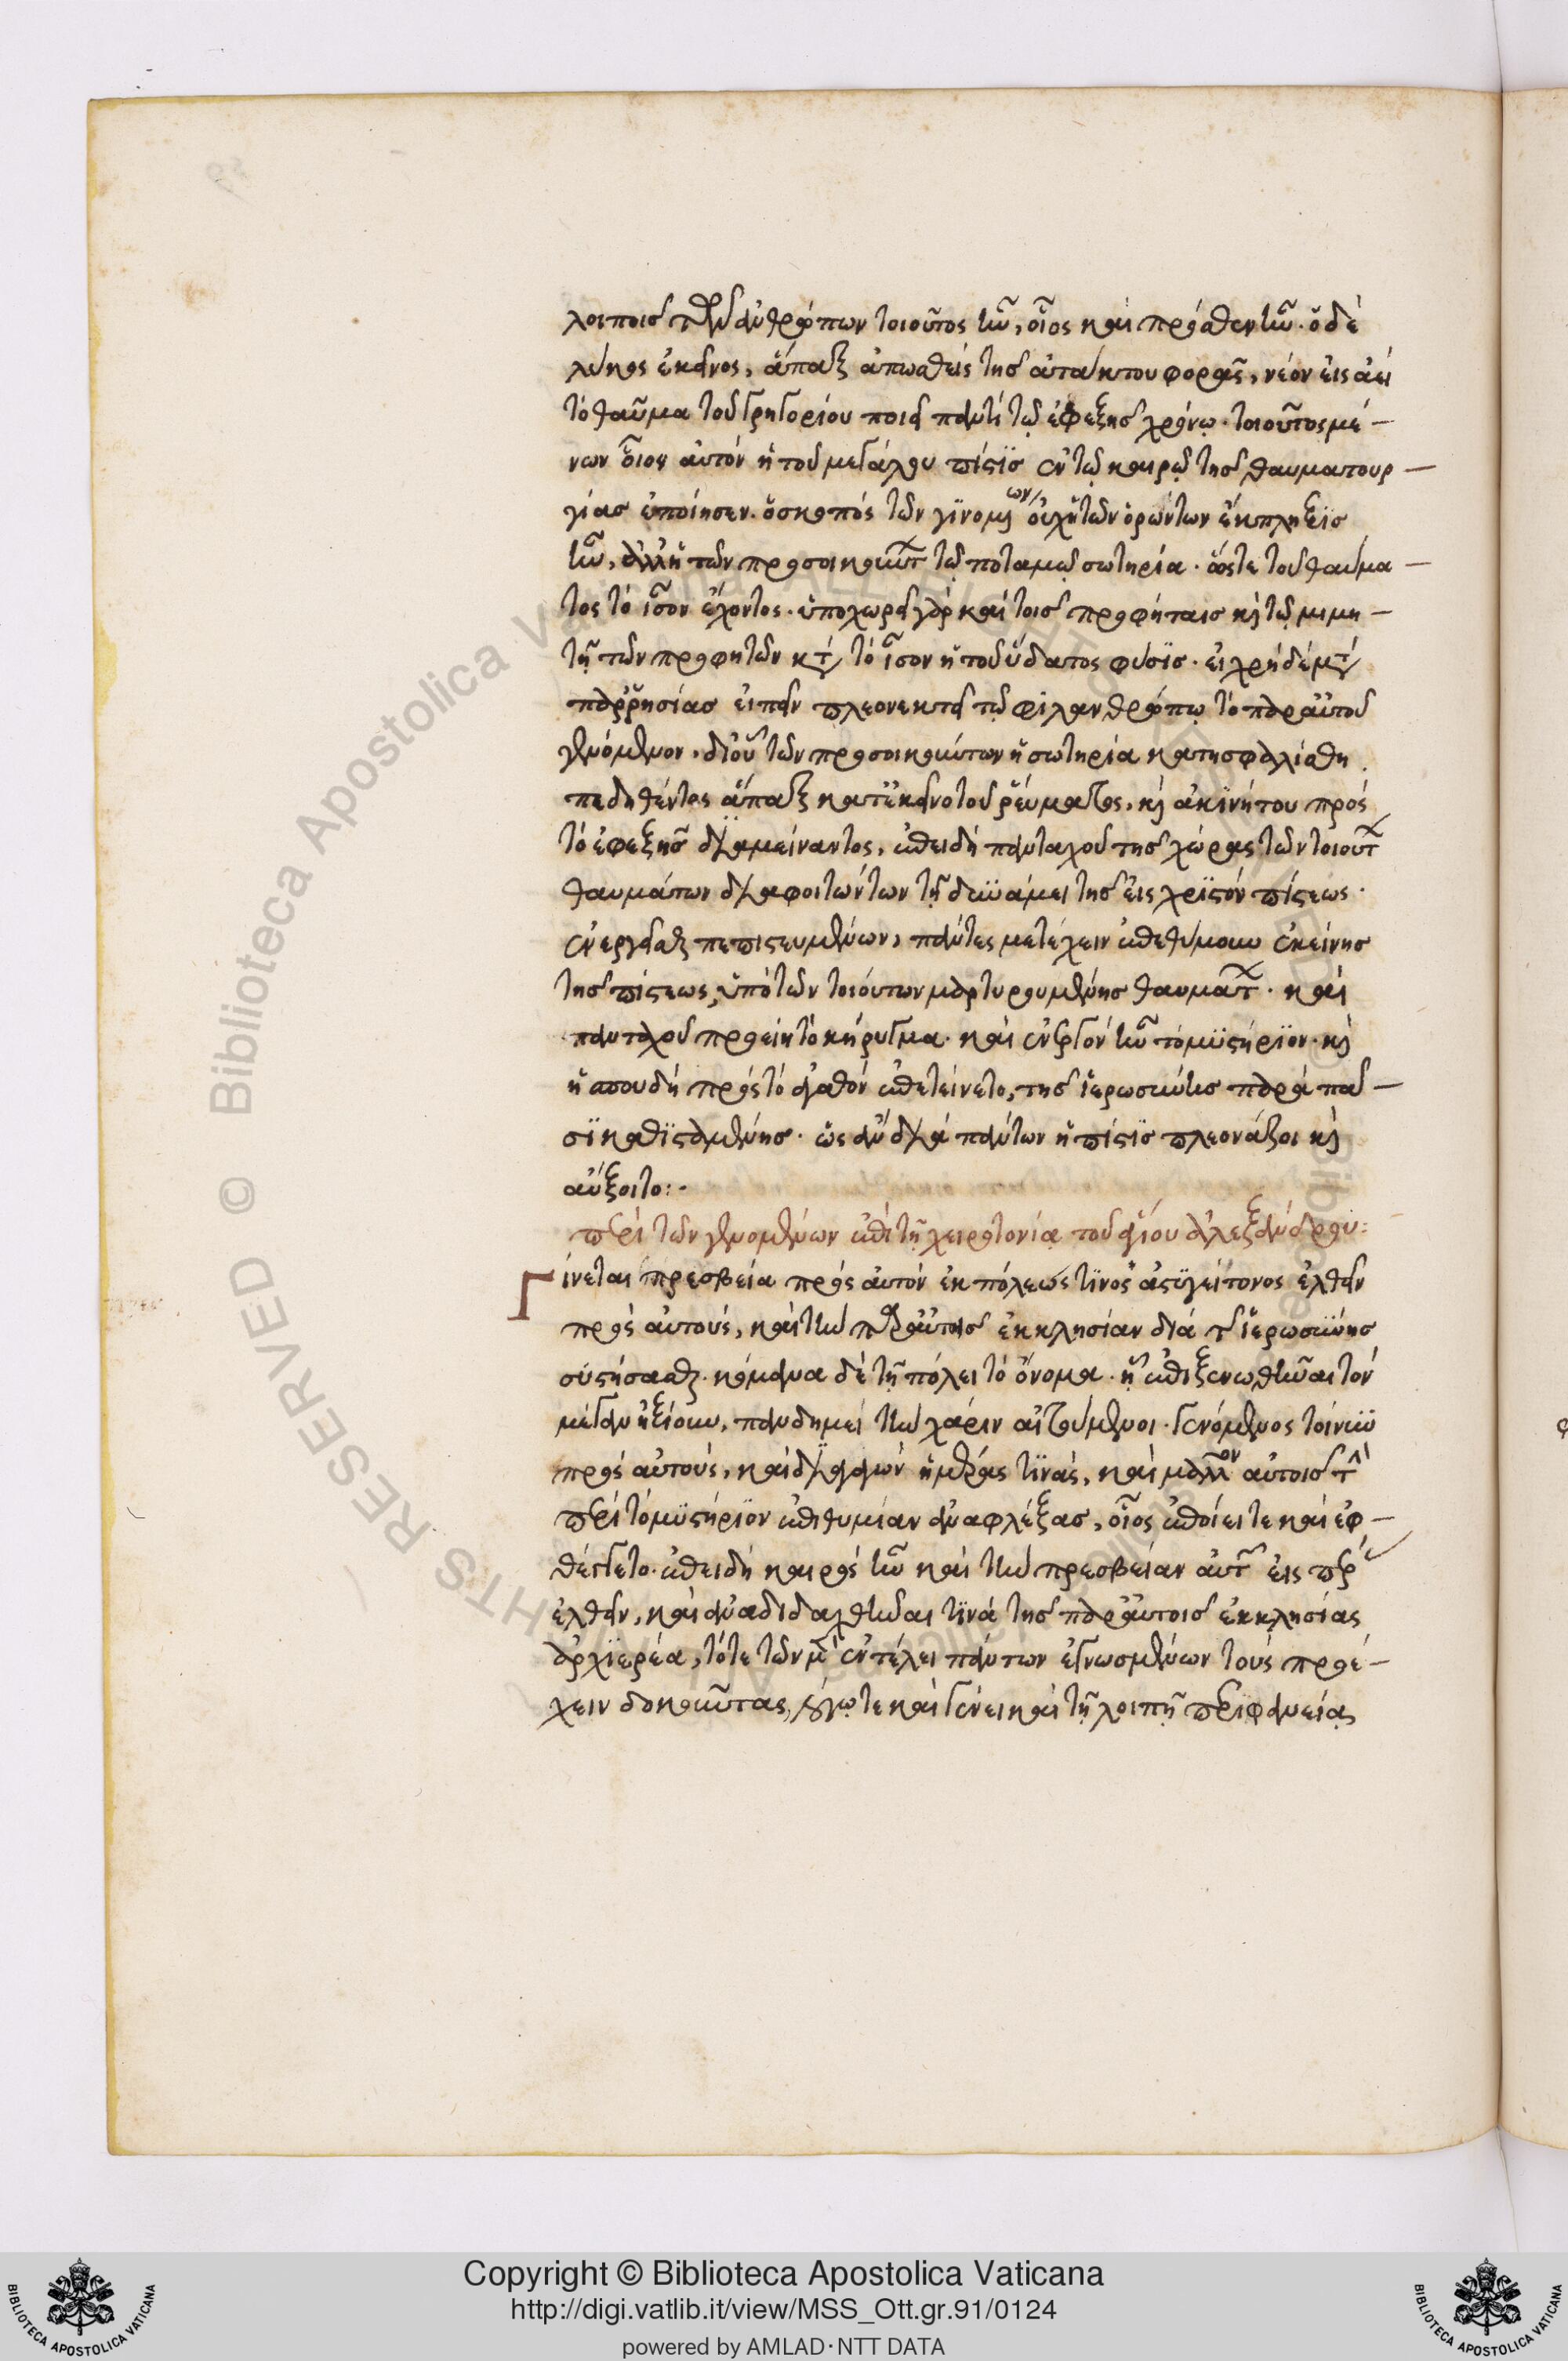 λοιποῖς τῶν ἀνθρώπων τοιοῦτος ἦν, οἷος καὶ πρόσθεν ἦν. ὁ δὲ
λύκος ἐκεῖνος, ἅπαξ ἀπωσθεὶς τῆς ἀτάκτου φορᾶς, νέον εἰς ἀεὶ
τὸ θαῦμα τοῦ γρηγορίου ποιεῖ παντὶ τῷ ἐφεξῆς χρόνῳ. τοιοῦτος μέ-
νων οἷον αὐτὸν ἡ τοῦ μεγάλου πίστις ἐν τῷ καιρῷ τῆς θαυματουρ-
γίας ἐποίησεν. ὁ σκοπὸς τῶν γινομένων οὐχ ἡ τῶν ὁρώντων ἔκπληξις
ἦν, ἀλλ' ἡ τῶν προσοικούντων τῷ ποταμῷ σωτηρία. ὥστε τοῦ θαύμα-
τος τὸ ἴσον ἔχοντος. ὑποχωρεῖ γὰρ καὶ τοῖς προφήταις καὶ τῷ μιμη-
τῇ τῶν προφητῶν κατὰ τὸ ἴσον ἡ τοῦ ὕδατος φύσις. εἰ χρὴ δὲ μετὰ
παρρησίας εἰπεῖν πλεονεκτεῖ τῷ φιλανθρώπῳ τὸ παρ' αὐτοῦ
γενόμενον. δι' οὗ τῶν προσοικούντων ἡ σωτηρία κατησφαλίσθη
πεδηθέντος ἅπαξ κατ' ἐκεῖνο τοῦ ῥεύματος, καὶ ἀκινήτου πρὸς
τὸ ἐφεξῆς διαμείναντος, ἐπειδὴ πανταχοῦ τῆς χώρας τῶν τοιούτων
θαυμάτων διαφοιτώντων τῇ δυνάμει τῆς εἰς χριστὸν πίστεως.
ἐνεργεῖσθαι πεπιστευμένων, πάντες μετέχειν ἐπεθύμουν ἐκείνης
τῆς πίστεως, ὑπὸ τῶν τοιούτων μαρτυρουμένης θαυμάτων. καὶ
πανταχοῦ προσείη τὸ κήρυγμα. καὶ ἐνεργὸν ἦν τὸ μυστήριον. καὶ
ἡ σπουδὴ πρὸς τὸ ἀγαθὸν ἐπετείνετο, τῆς ἱερωσύνης παρὰ πᾶ-
σι καθισταμένης. ὡς ἂν διὰ πάντων ἡ πίστις πλεονάζοι καὶ
αὔξοιτο:.
περὶ τῶν γενομένων ἐπὶ τῇ χειροτονίᾳ τοῦ ἁγίου ἀλεξάνδρου:
Γίνεται πρεσβεία πρὸς αὐτὸν ἐκ πόλεώς τινος ἀστυγείτονος ἐλθεῖν
πρὸς αὐτούς, καὶ τὴν παρ' αὐτοῖς ἐκκλησίαν διὰ τῆς ἱερωσύνης
συστήσασθαι. κόμανα δὲ τῇ πόλει τὸ ὄνομα. ᾗ ἐπιξενωθῆναι τὸν
μέγαν ἠξίουν, πανδημεὶ τὴν χάριν αἰτούμενοι. γενόμενος τοίνυν
πρὸς αὐτούς, καὶ διαγαγὼν ἡμέρας τινάς, καὶ μᾶλλον αὐτοῖς τὴν
περὶ τὸ μυστήριον ἐπιθυμίαν ἀναφλέξας, οἷος ἐποίει τε καὶ ἐφ-
θέγγετο. ἐπειδὴ καιρὸς ἦν καὶ τὴν πρεσβείαν αὐτῶν εἰς πέρας
ἐλθεῖν, καὶ ἀναδειχθῆναί τινα τῆς παρ' αὐτοῖς ἐκκλησίας
ἀρχιερέα, τότε τῶν μὲν ἐν τέλει πάντων ἐγνωσμένων τοὺς προέ-
χειν δοκοῦντας, λόγῳ τε καὶ γένει καὶ τῇ λοιπῇ περιφανείᾳ
Copyright © Biblioteca Apostolica Vaticana
http://digi.vatlib.it/view/MSS_Ott.gr.91/0124
powered by AMLAD·NTT DATA